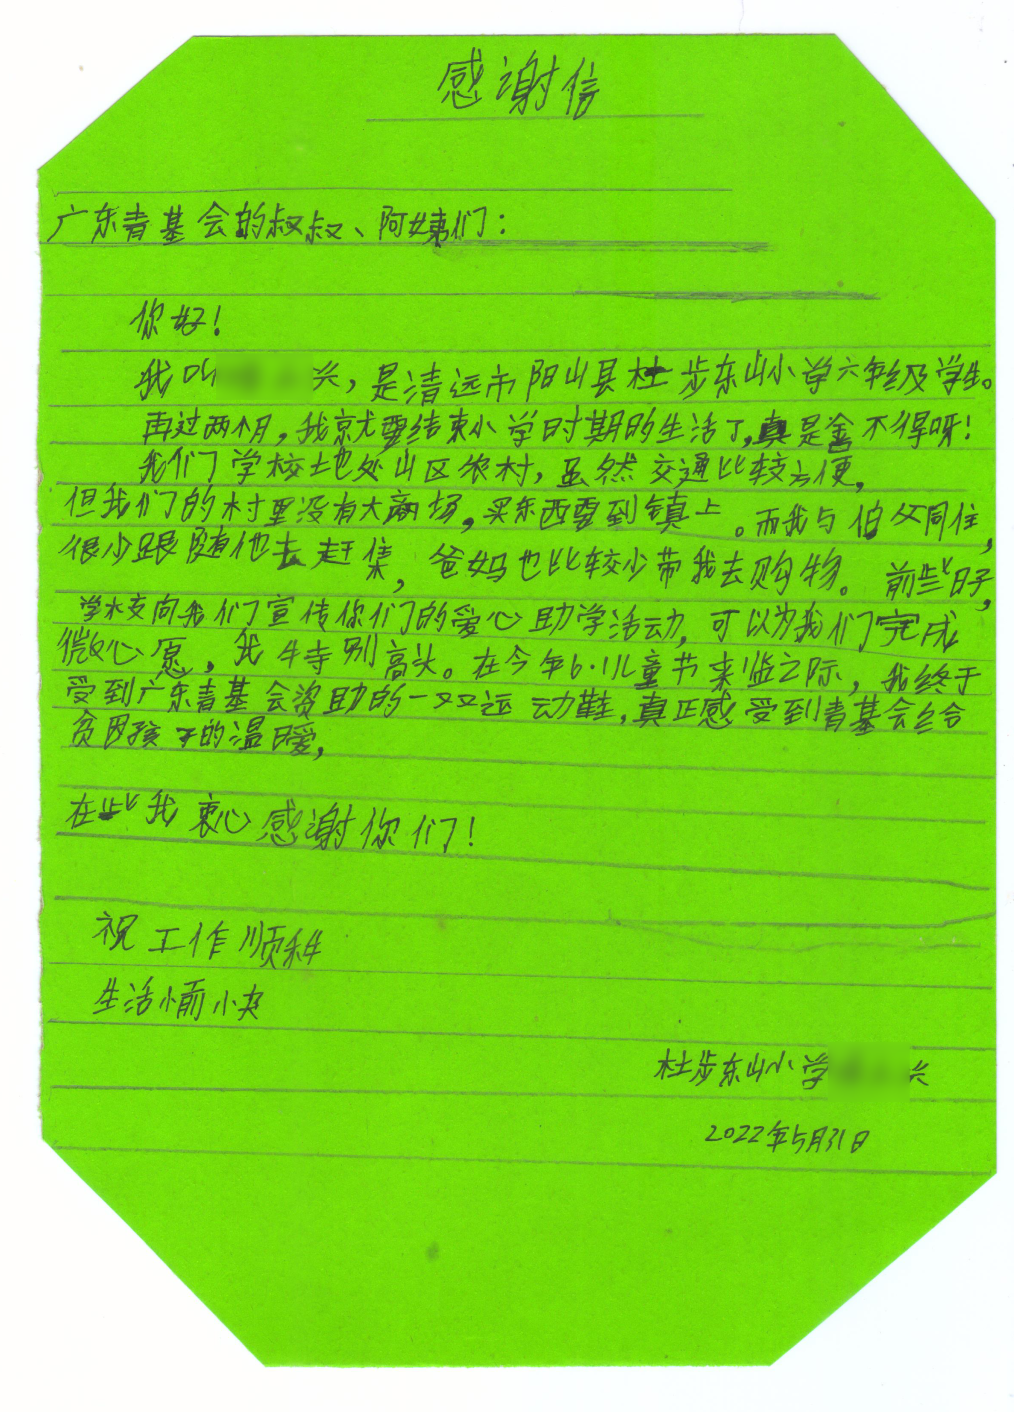 感谢信
广东青基会的叔叔、阿姨们：
你好！
我叫兴，是清远市阳山县杜步东山小学六年级学生。
再过两个月，我就要结束小学时期的生活了，真是舍不得呀！
我们学校土地处山区农村，虽然交通比较方便，
但我们的村里没有大商场，买东西要到镇上。而我与伯父同住，
很少跟随他去赶集，爸妈也比较少带我去购物。前些日子，
学校向我们宣传你们的爱心助学活动，可以为我们完成
微心愿，我特别高兴。在今年6·1儿童节来临之际，我终于
受到广东青基会资助的一双运动鞋，真正感受到青基会给
贫困孩子的温暖，
在些我衷心感谢你们！
祝工作顺利
生活愉快
杜步东山小学兴
2022年5月31日